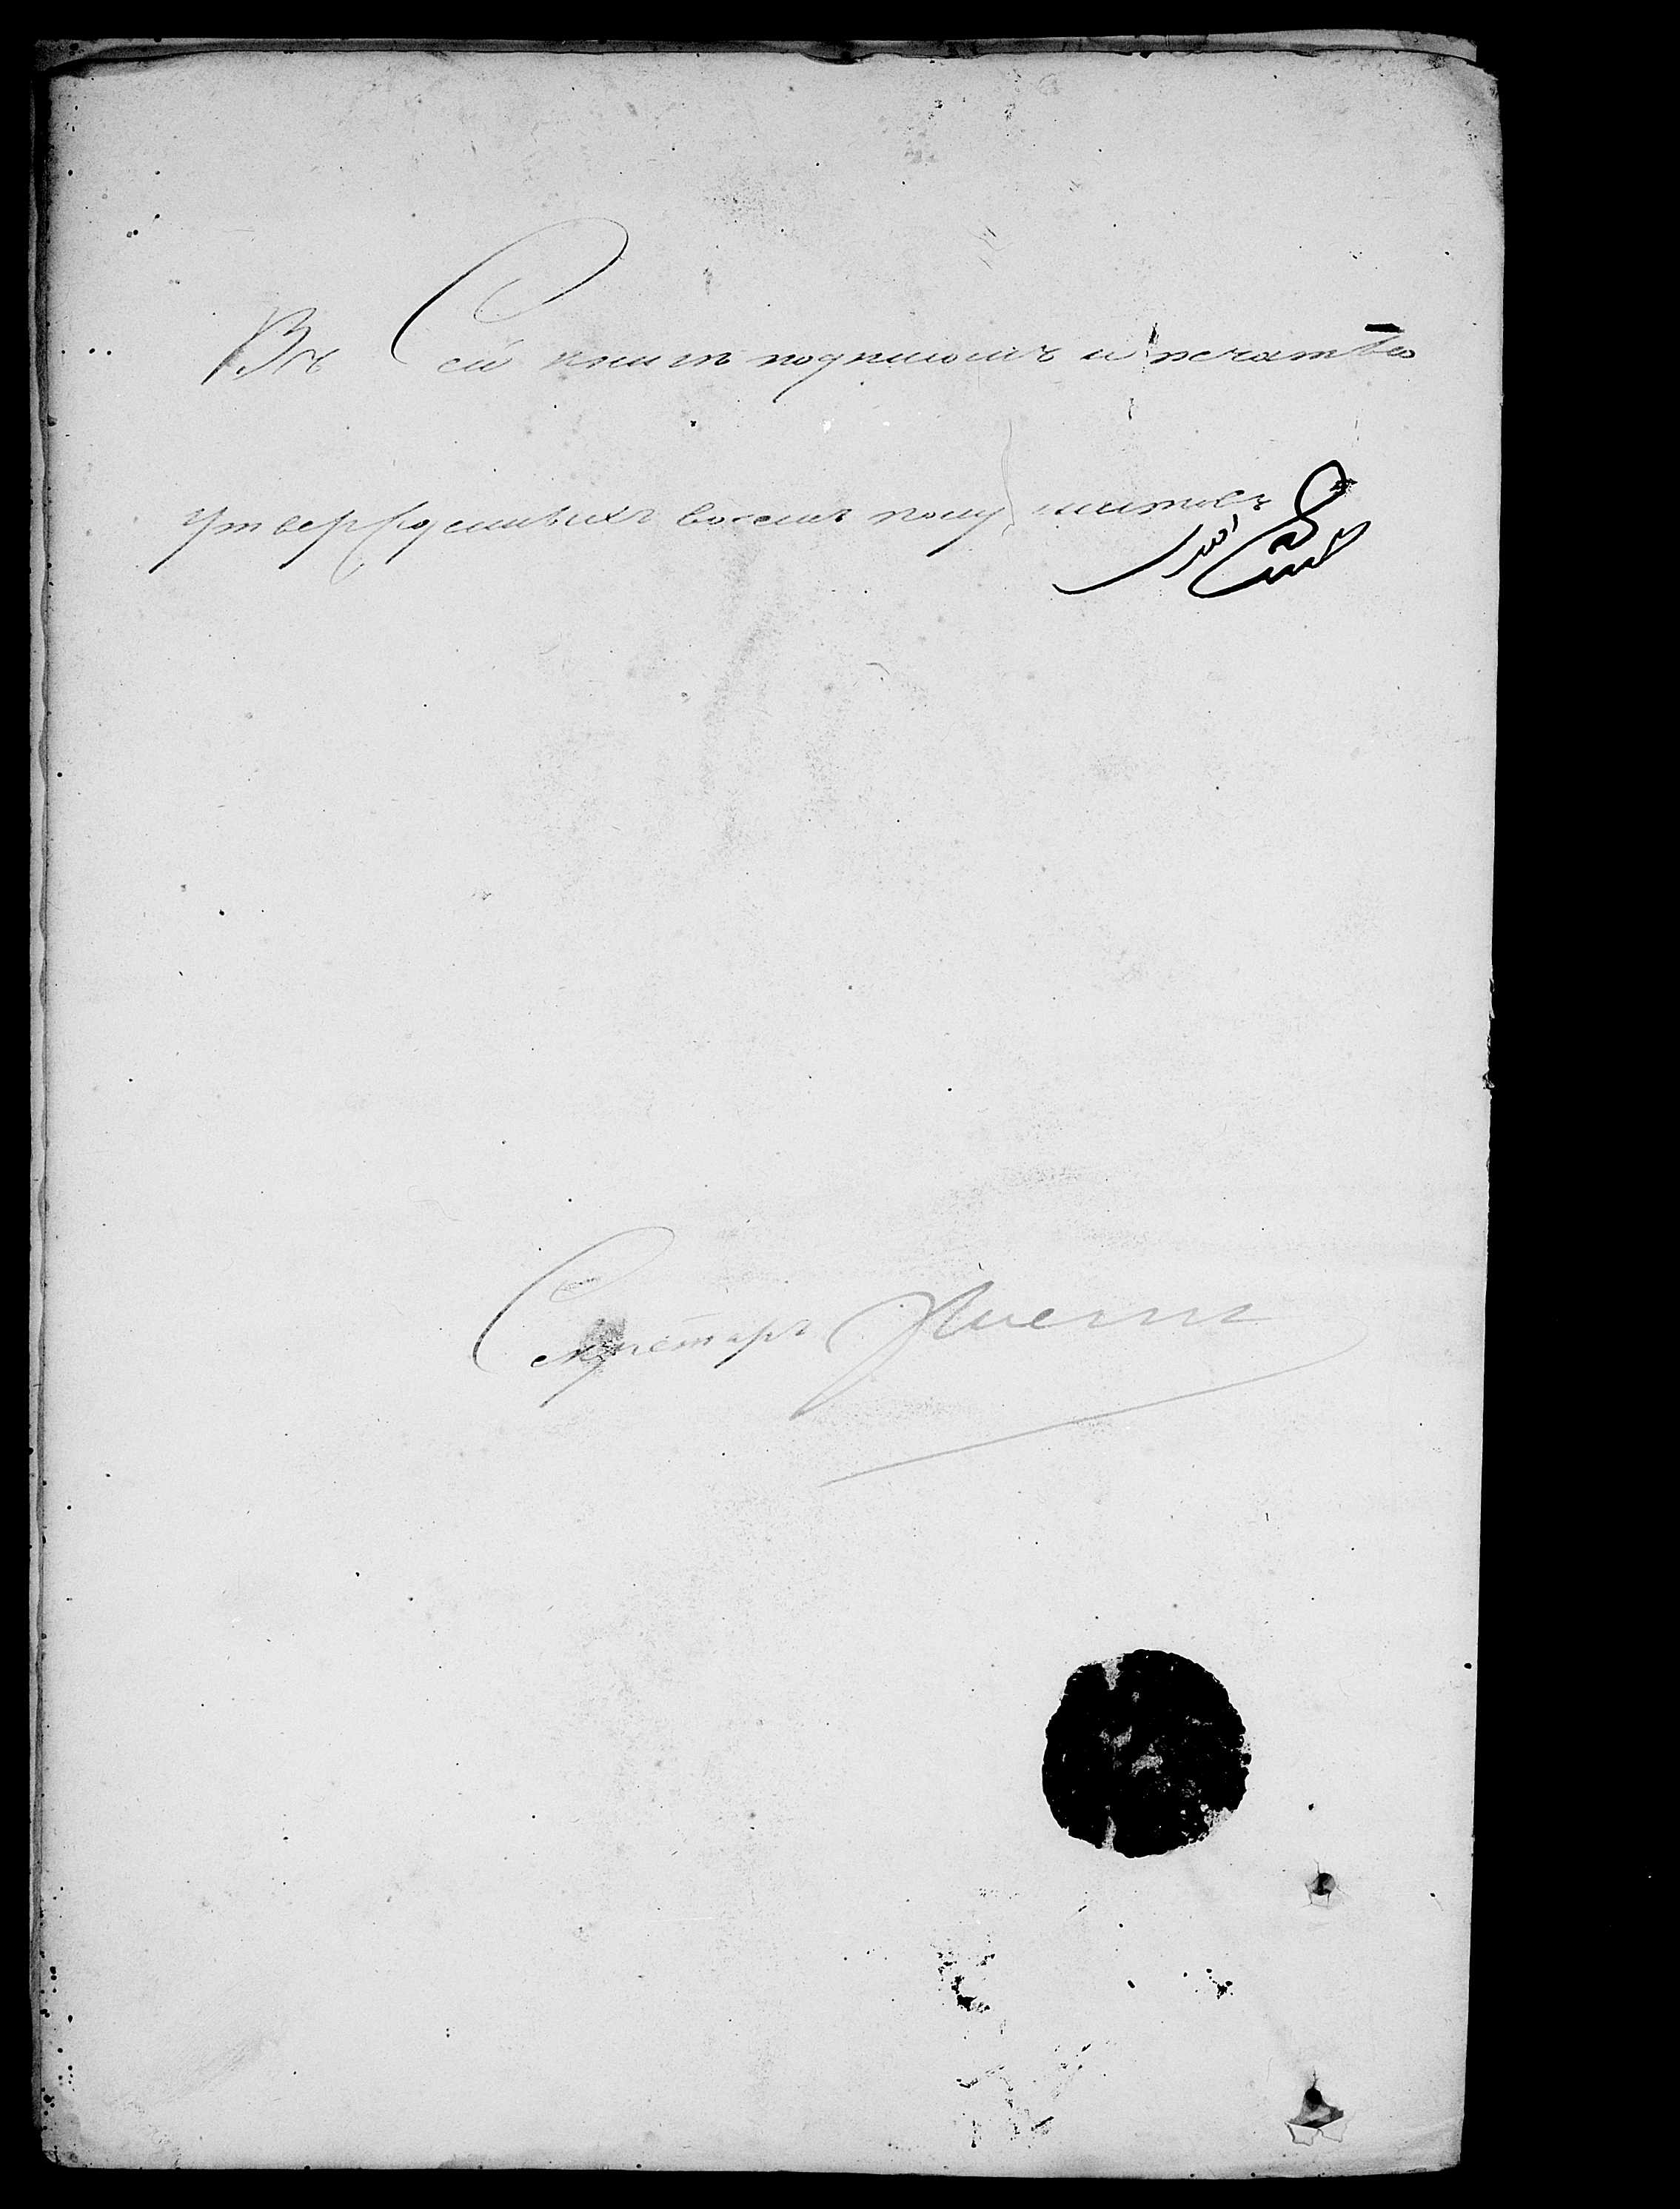 Въ Сей книги подписомъ и печатью
утвержденныхъ восемь полулистовъ
Секретарь